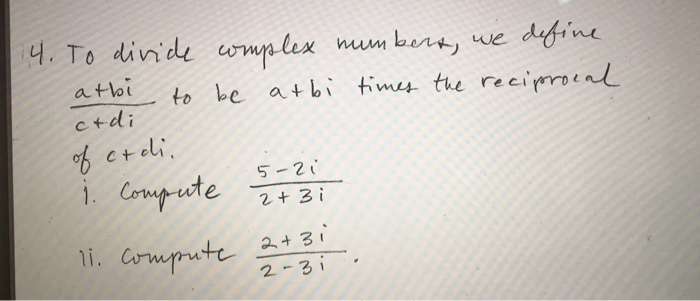 4. To divide complex numbers, we define
a+bi / c+di to be a+bi times the reciprocal
of c+di.
i. Compute 5-2i / 2+3i
ii. compute 2+3i / 2-3i .